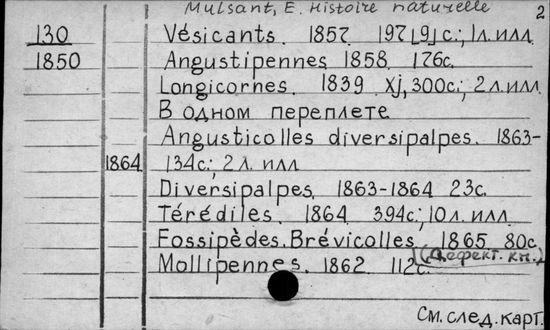 Mulsant, E. Histoire naturelle 2
130 Vésicants. 1857. 197[9]с.; 1л. илл.
1850 Angustipennes 1858. 176с.
Longicornes. 1839 Xj, 300с.; 2л. илл.
В одном переплете
Angusticolles diversipalpes. 1863-
1864 134с.; 2л. илл
Diversipalpes. 1863-1864 23с.
Térédiles. 1864 394с.; 10л. илл.
Fossipèdes. Brévicolles 1865 80с.
(Дефект. кн.)
Mollipennes. 1862 112с.
См. след. карт.